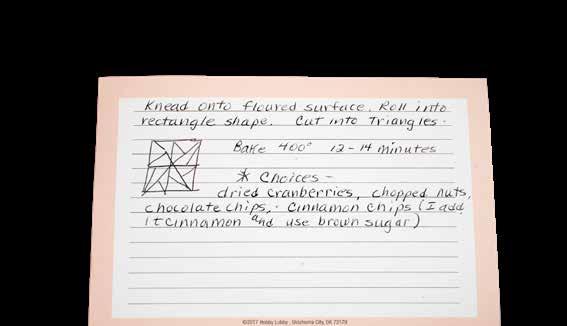 Knead onto floured surface. Roll into
rectangle shape. Cut into Triangles.
Bake 400° 12-14 minutes
* Choices -
dried cranberries, chopped nuts,
chocolate chips, · Cinnamon chips (I add
1 t cinnamon and use brown sugar)
©2017 Hobby Lobby, Oklahoma City, OK 73179